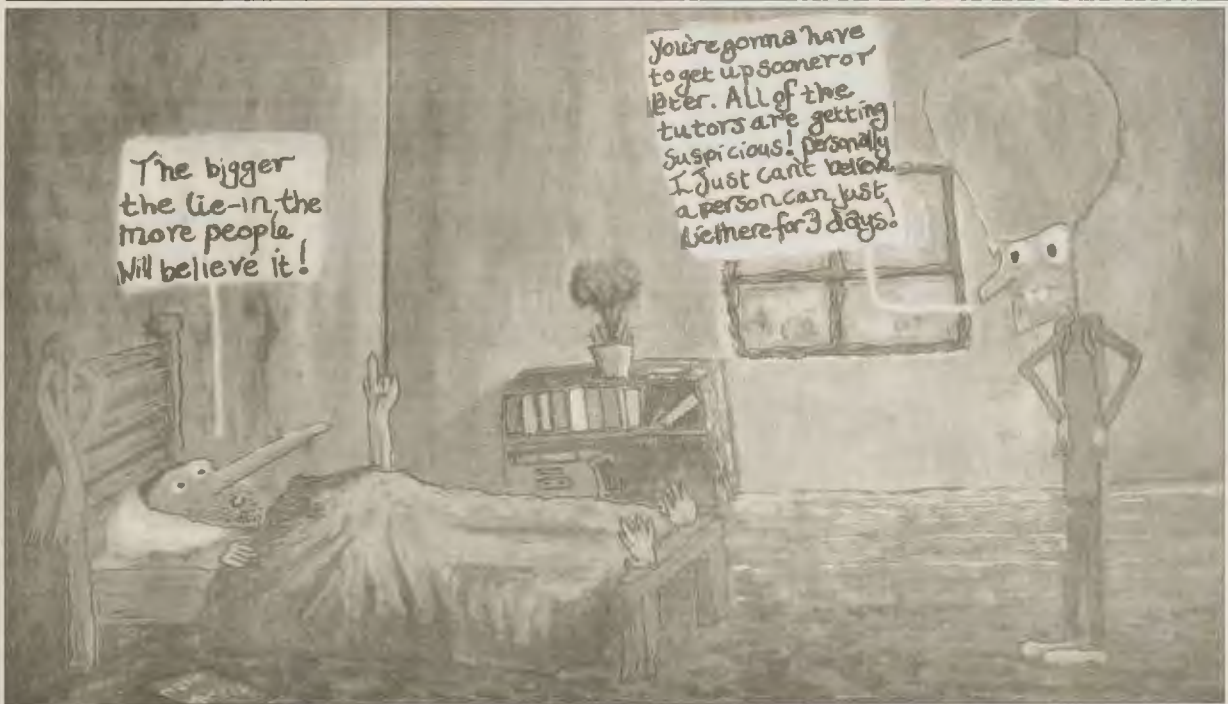 The bigger
the lie-in, the
more people
Will believe it!
You're gonna have
to get up sooner or
later. All of the
tutors are getting
suspicious! personally
I Just can't believe
a person can just
lie there for 3 days!